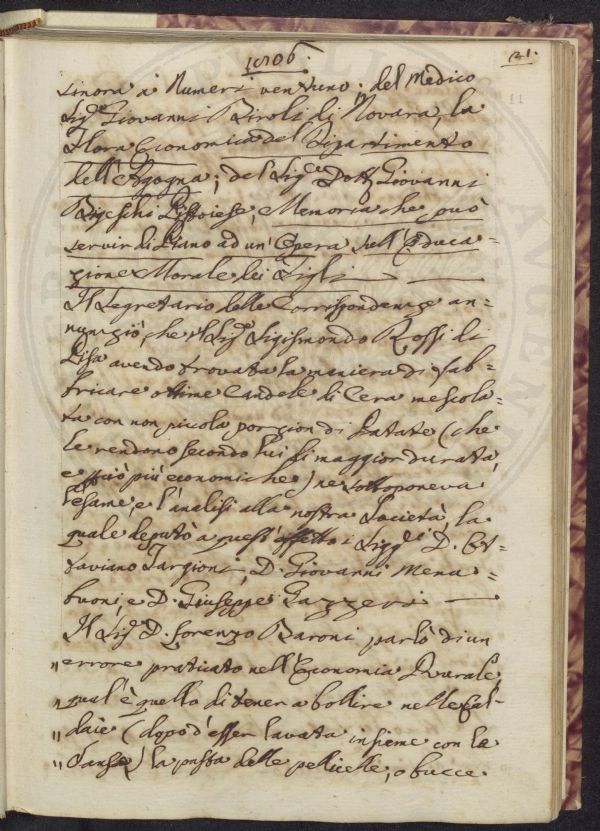 1806.
121.
11
sinora à Numeri ventuno; del Medico
Sig.e Giovanni Biroli di Novara, la
Flora Economica del Dipartimento
dell'Agogna; del Sig.e Dott. Giovanni
Bigeschi Pistojese, Memoria che può
servir di Piano ad un'Opera sull'Educa=
zione Morale dei Figli
Il Segretario delle Corrispondenze an=
nunziò, che il Sig.e Sigismondo Rossi di
Pisa avendo trovata la maniera di fab=
bricare ottime Candele di Cera mescola=
ta con non piccola porzion di Patate (che
le rendono secondo lui di maggior durata,
e perciò più economiche) ne sottoponeva
l'esame, e l'analisi alla nostra Società, la
quale deputò a quest'effetto i Sigg.i D. Ot=
taviano Targioni, D. Giovanni Mena=
buoni, e D. Giuseppe Gazzeri
Il Sig.e D. Lorenzo Baroni parlò di un
"errore praticato nell'Economia Rurale,
"qual'è quello di tener a bollire nelle Cal=
"daie (dopo d'esser lavata insieme con la
"Sansa) la pasta delle pellicelle, o bucce